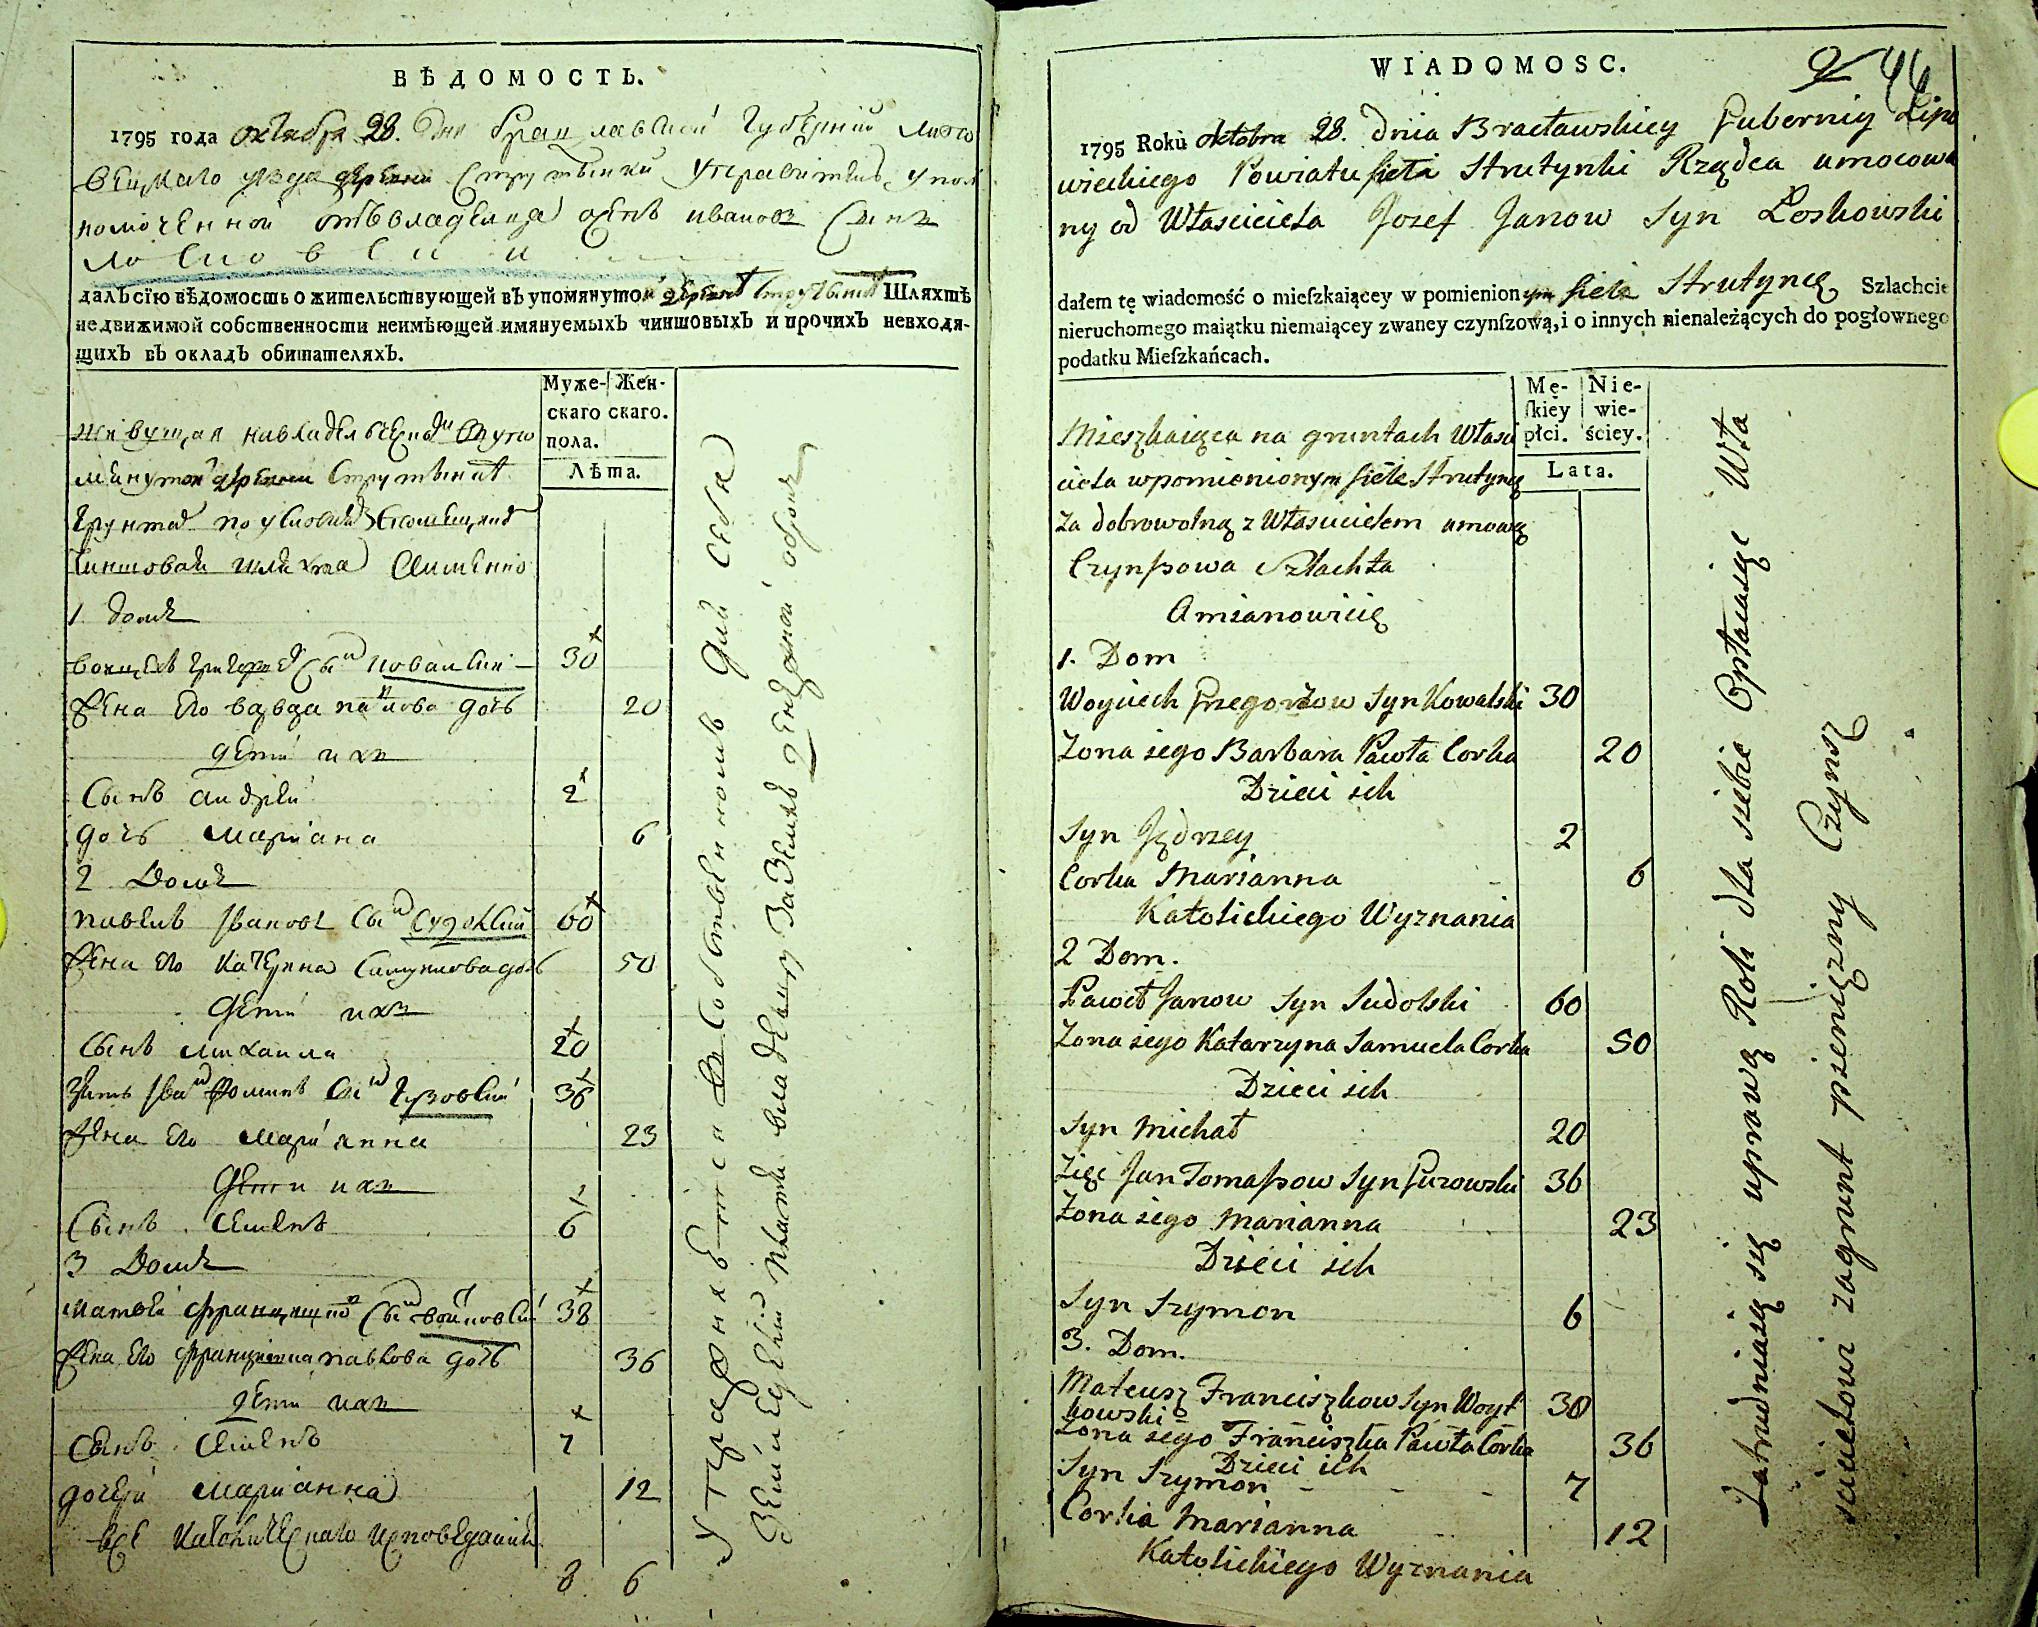 ВѢДОМОСТЬ.
1795 года октября 28. дня Брацлавской Губернии Липо
вецкаго уѣзда деревни Струтынки Управитель упол
номоченной отъ владельца осипъ ивановъ Сынъ
Лосковский
далъ сїю вѣдомость о жительствующей въ упомянутой деревнѣ Струтынкѣ Шляхтѣ
недвижимой собственности неимѣющей имянуемыхъ чиншовыхъ и прочихъ невходя-
щихъ въ окладъ обитателяхъ.
Муже- Жен-
скаго скаго.
пола.
Лѣта.
живущая на владельческой в упо
мянутой деревни Струтынкѣ
Грунтѣ по условию с помещикомъ
Чиншовая шляхта а именно
1 домъ
войцехъ григорьевъ Сынъ ковальский 30
Жена его варвара павлова дочь 20
дети ихъ
Сынъ андрей 2
дочь мариана 6
2 Домъ
павелъ Ивановъ Сынъ Судольский 60
Жена его Катерина Самуилова дочь 50
Дети ихъ
Сынъ михаила 20
Зять Иванъ Фоминъ Сынъ Гузовский 36
Жена его марианна 23
Дети ихъ
Сынъ Семенъ 6
3 Домъ
матвей францишковъ Сынъ войтковский 38
Жена его францишка павлова дочь 36
дети ихъ
Сынъ Семенъ 7
дочерь марианна 12
все католическаго исповедания
8 6
Упражняется в собственномъ для себя
земли едении платя владельцу за землю денежной оброкъ
WIADOMOSC.
2 44
1795 Roku oktobra 28. Dnia Bracławskiey Gubernij Lipo
wieckiego Powiatu sieła Strutynki Rządca umocowa
ny od Własciciela Jozef Janow Syn Loskowski
dałem tę wiadomość o mieſzkaiącey w pomienionym siele Strutyncę Szlachcie
nieruchomego maiątku niemaiącey zwaney czynſzową, i o innych nienależących do pogłownego
podatku Mieſzkańcach.
Mę- Nie-
ſkiey wie-
płci. ściey.
Lata.
Mieszkaiąca na gruntach Własci
ciela wpomienionym siele Strutyncę
za dobrowolną z Włascicielem umową
Czynszowa Szlachta
Amianowicię
1. Dom
Woyciech Grzegorzow Syn Kowalski 30
Zona iego Barbara Pawła Corka 20
Dzieci ich
Syn Jędrzey 2
Corka Marianna 6
Katolickiego Wyznania
2 Dom.
Paweł Janow Syn Sudolski 60
Zona iego Katarzyna Samuela Corka 50
Dzieci ich
Syn Michał 20
Zięć Jan Tomaszow Syn Guzowski 36
Zona iego Marianna 23
Dzieci ich
Syn Szymon 6
3. Dom.
Mateusz Franciszkow Syn Woyt 38
kowski
Zona iego Franciszka Pawła Corka 36
Dzieci ich
Syn Szymon 7
Corka Marianna 12
Katolickiego Wyznania
Zatrudniaią się uprawą Roli dla siebie Opłacaiąc Wła
scicielowi zagrunt pieniężny Czynsz